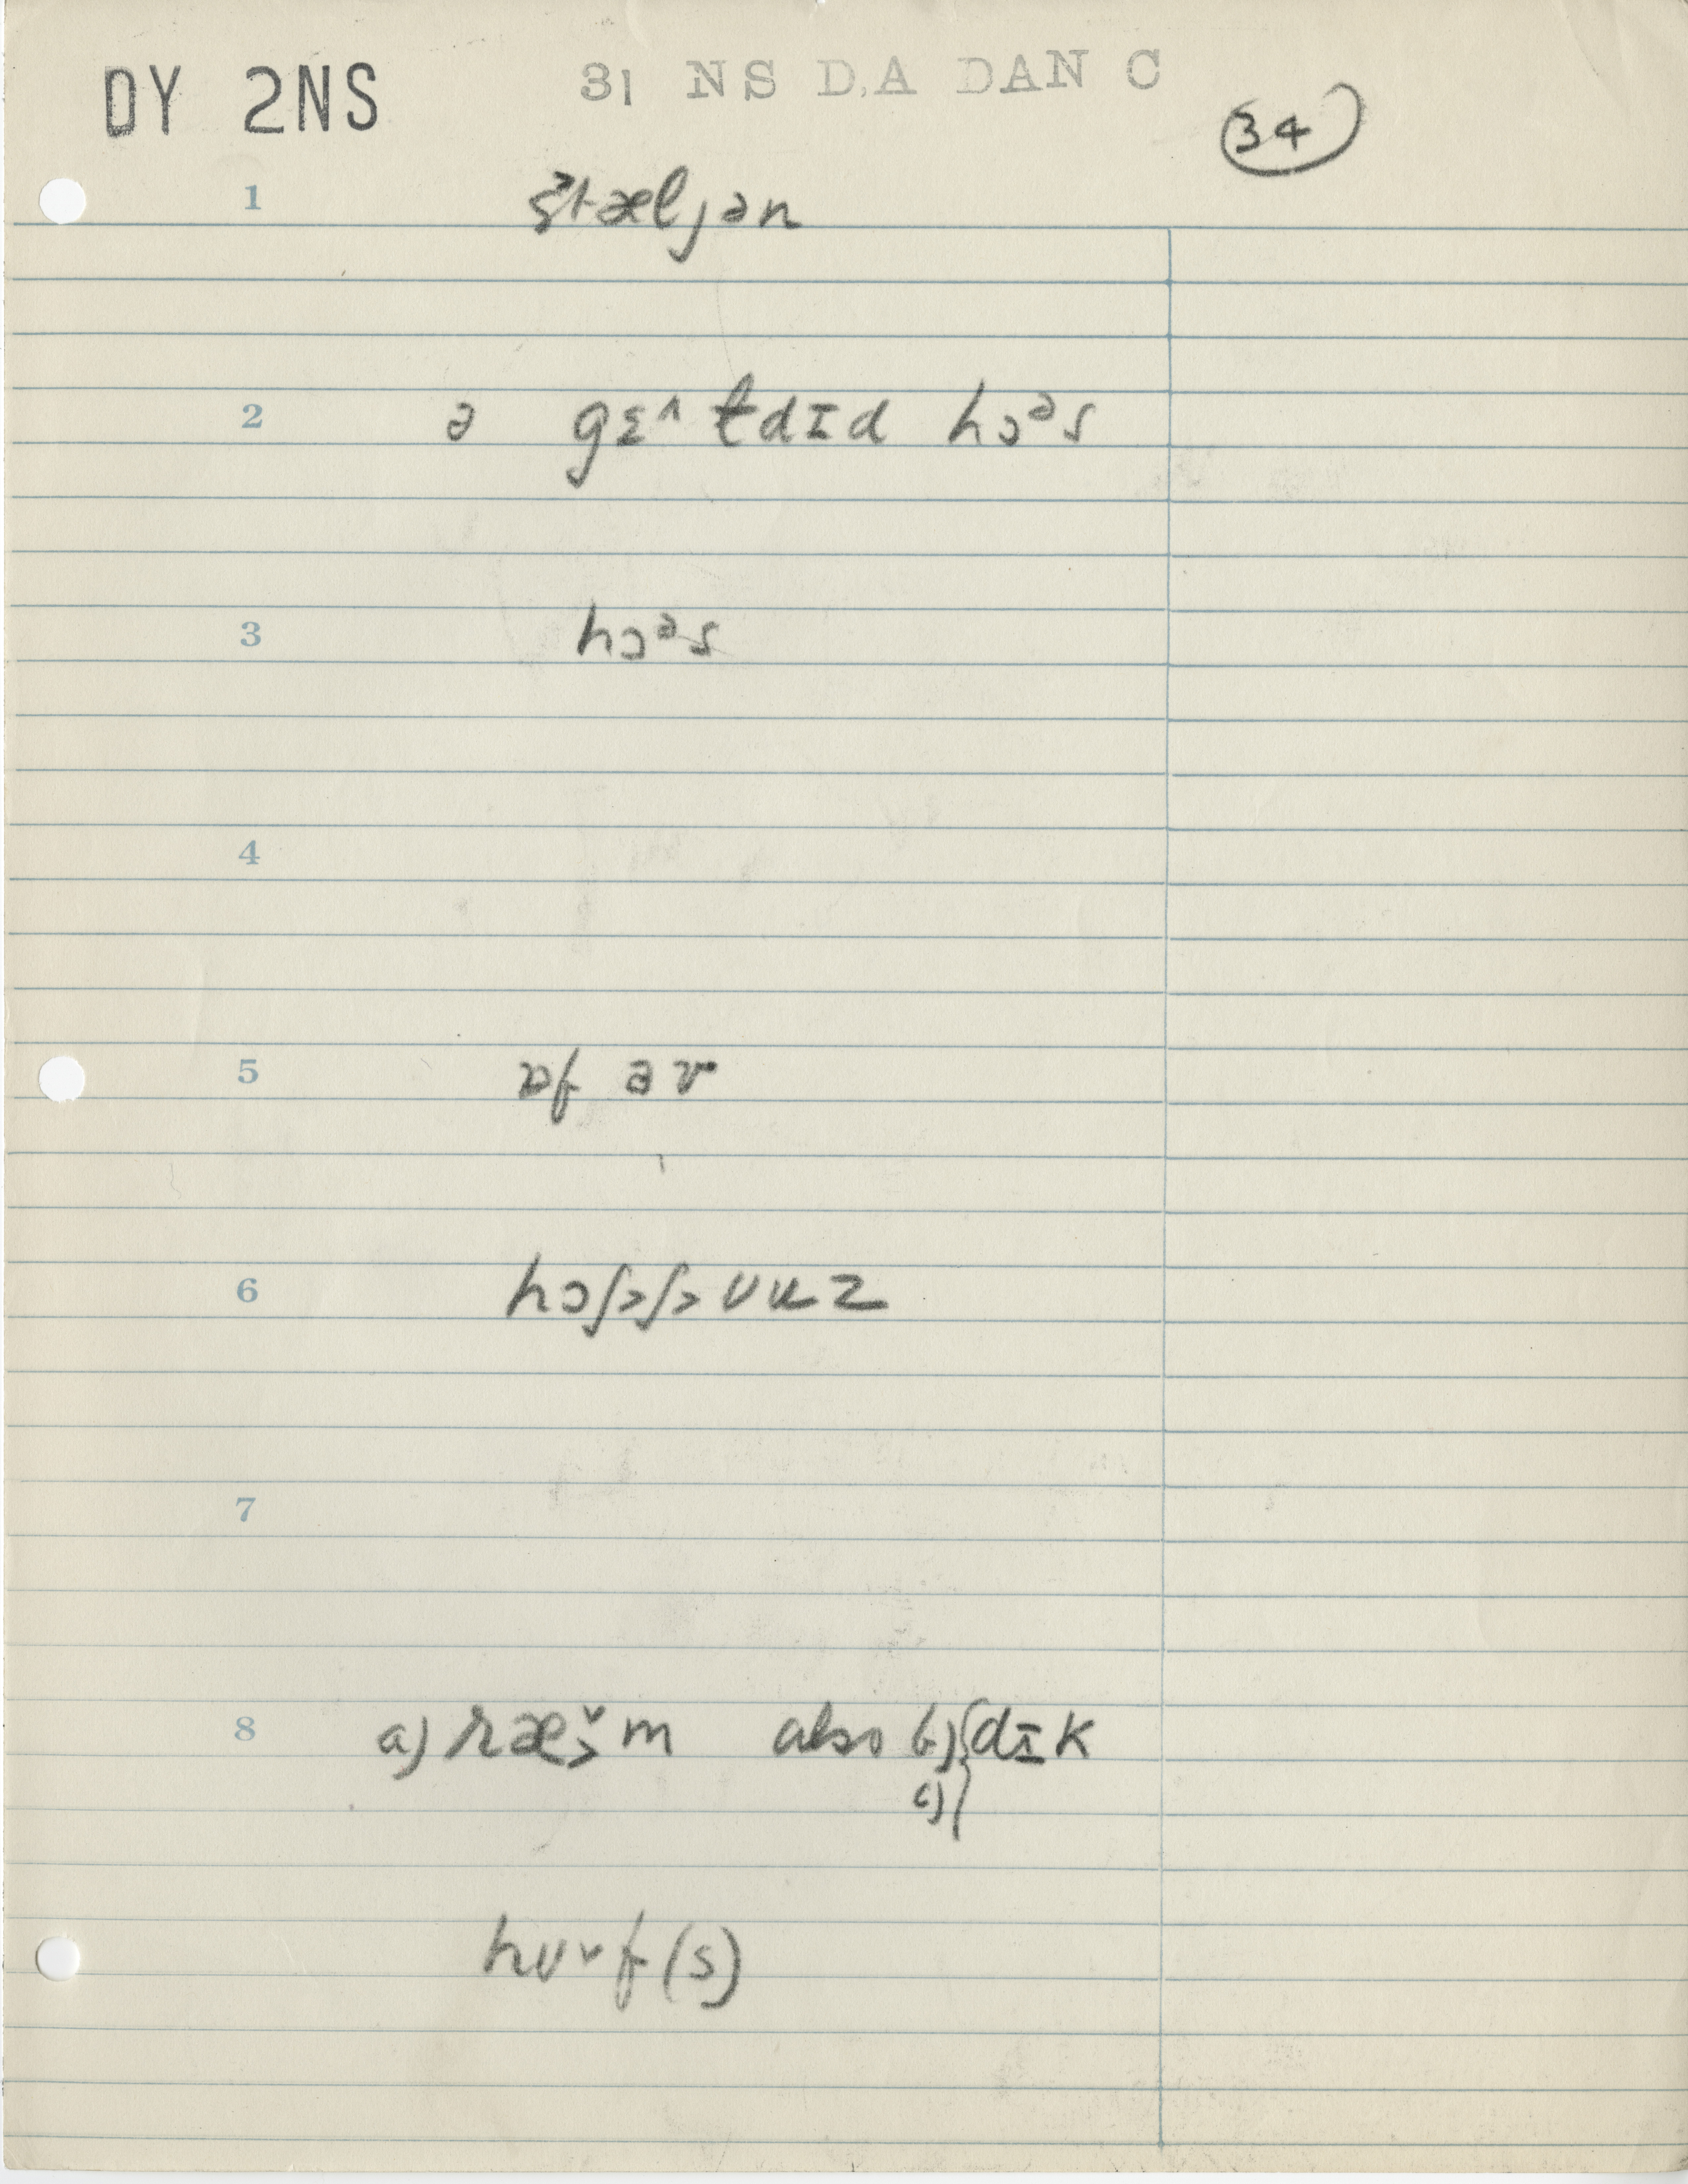 DY 2NS
31 NS D.A DAN C
34
1 stæljən
2 ə gɛ^ɫdɪd hɔᵊs
3 hɔᵊs
4
5 ɒf əv
6
7
8 a) ræ˅m also b) dɪk
c)
hʊ˅f(s)